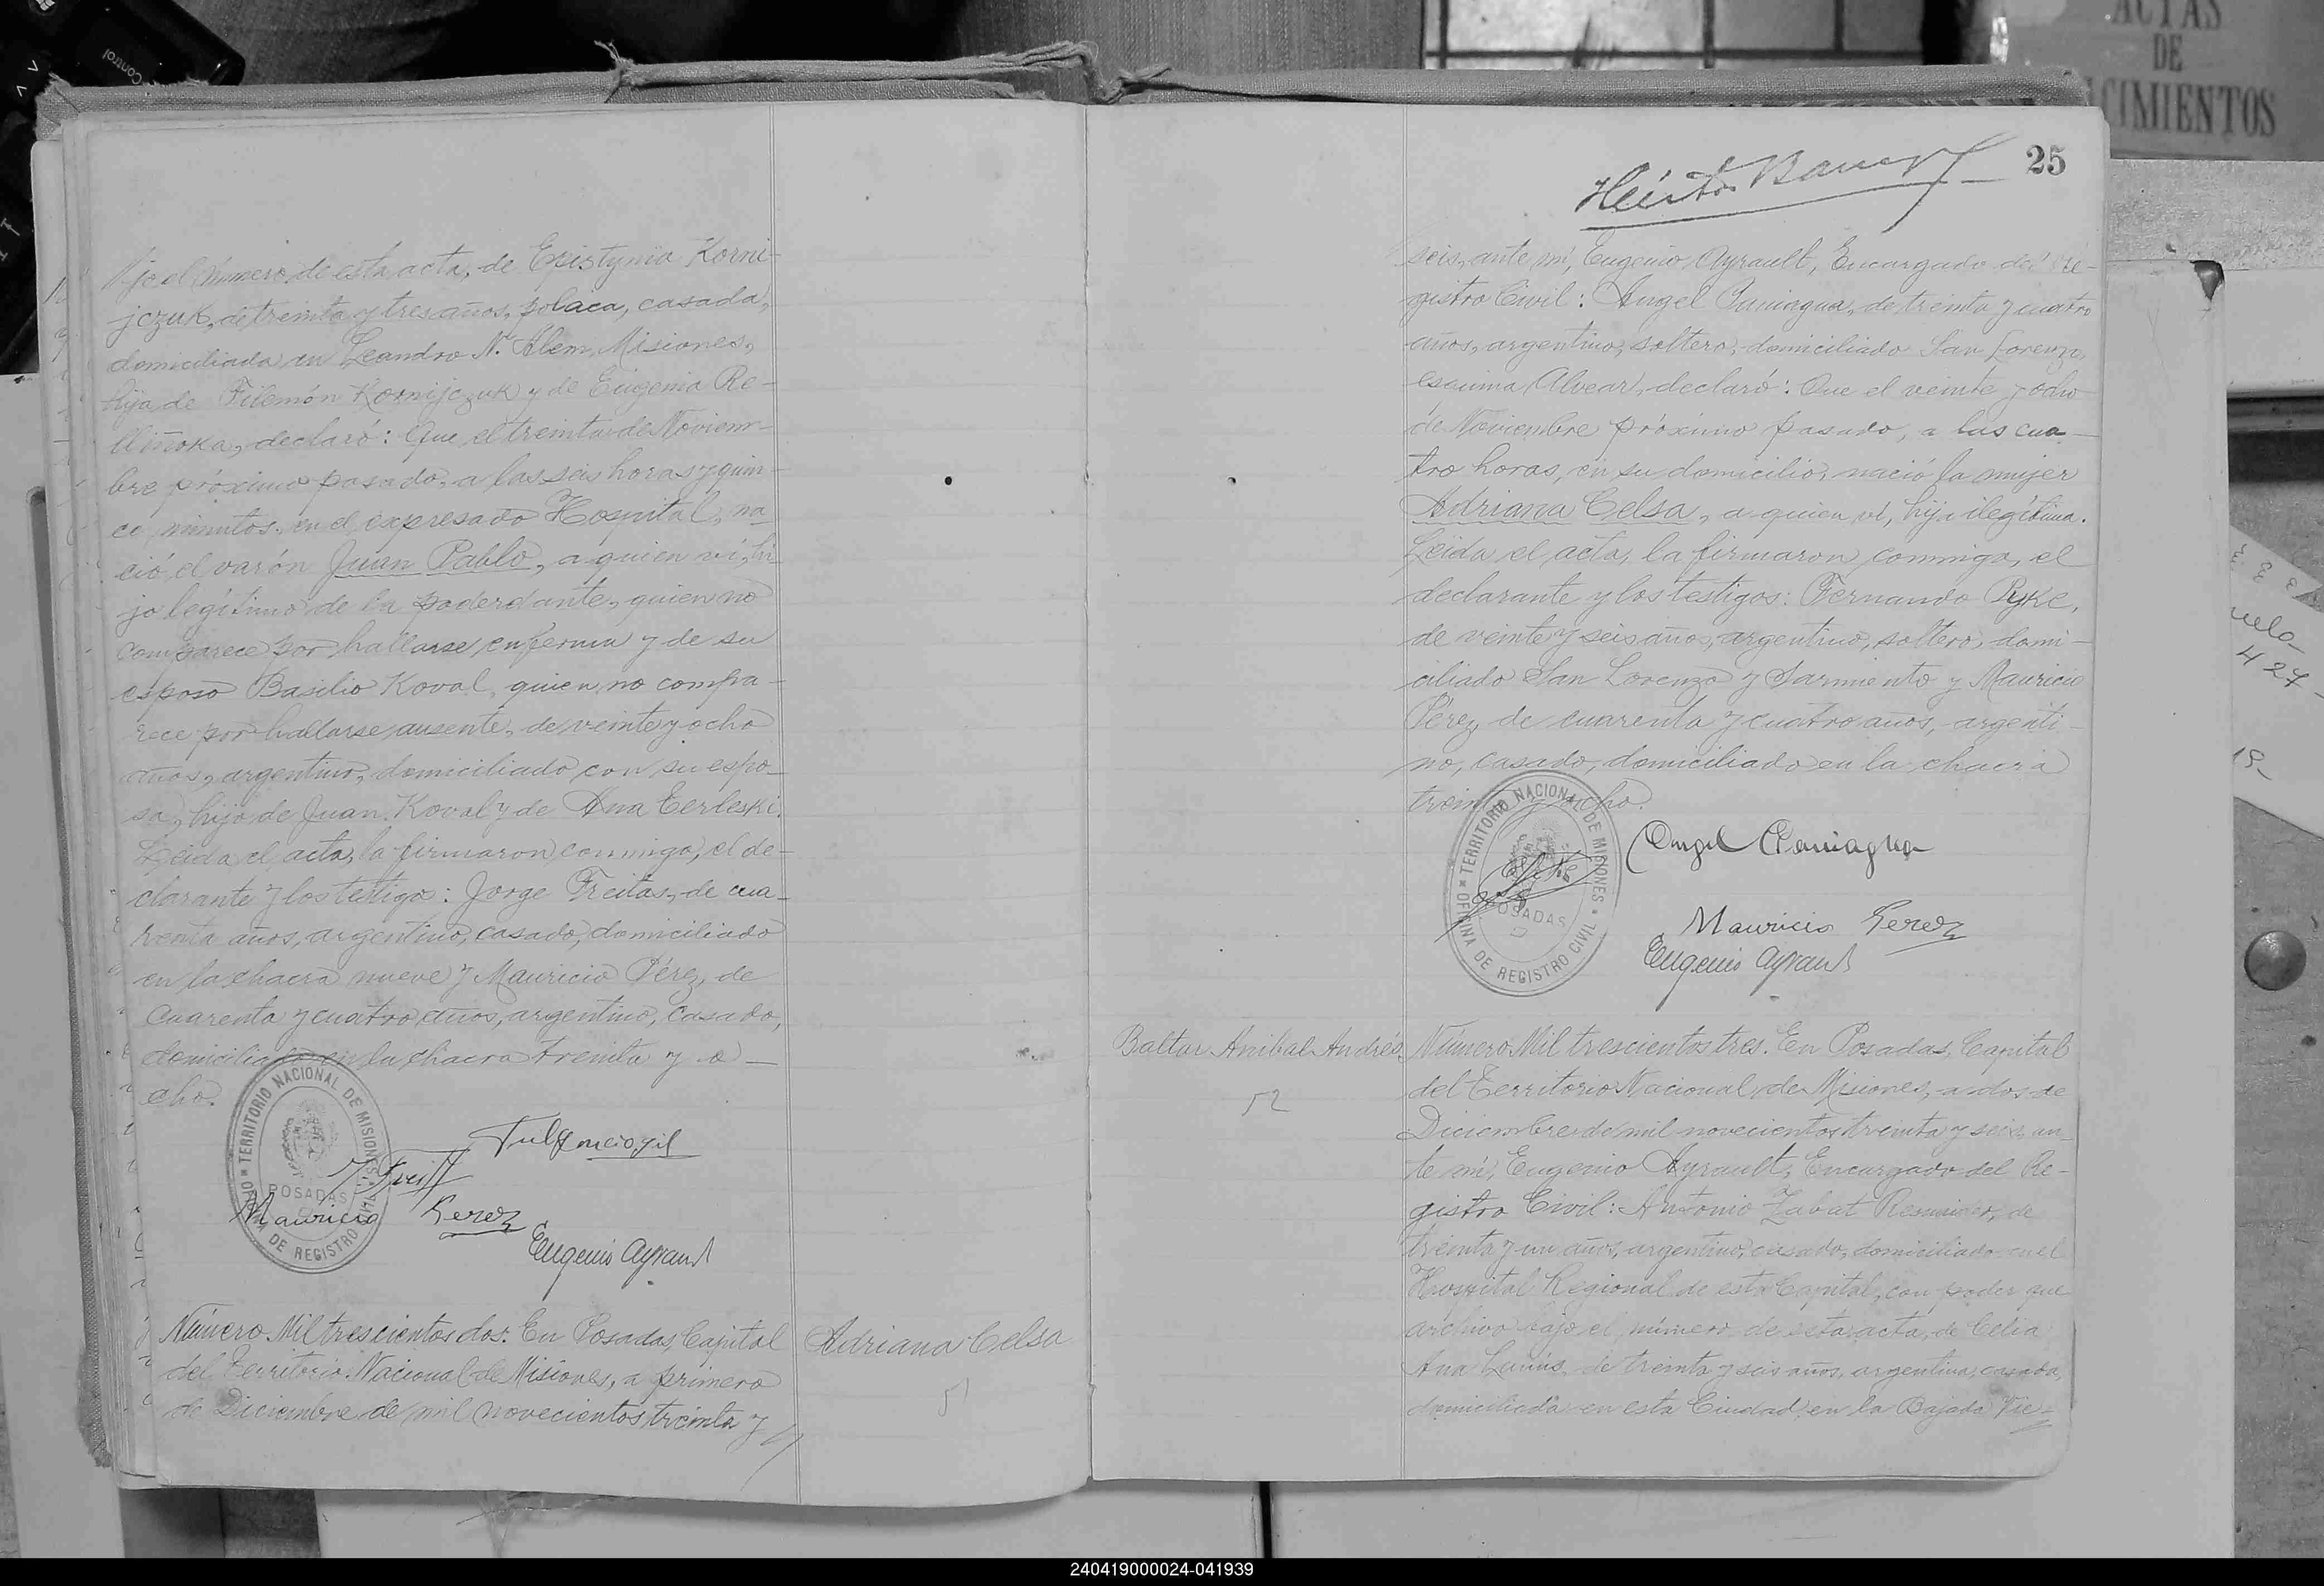 jo el número de esta acta, de Epistynia Korni-
jczuk, de treinta y tres años, polaca, casada,
domiciliada en Leandro N. Alem, Misiones,
hija de Filemón Kornijczuk y de Eugenia Re-
declaró: Que, el treinta de Noviem-
bre próximo pasado, a las seis horas y quin-
ce minutos, en el expresado Hospital, na
ció el varón Juan Pablo, a quien ví, hi
jo legítimo de la poderdante, quien no
comparece por hallarse enferma y de su
esposo Basilio Koval, quien no compa-
rece por hallarse ausente, de veinte y ocho
años, argentino, domiciliado con su espo-
sa, hijo de Juan Koval y de Ana Terleski.
Leida el acta, la firmaron conmigo, el de-
clarante y los testigo: Jorge Freitas, de cua-
renta años, argentino, casado, domiciliado
en la chacra nueve y Mauricio Pérez, de
cuarenta y cuatro años, argentino, casado,
domiciliado en la chacra treinta y o-
cho.
TERRITORIO NACIONAL DE MISIONES
OFICINA DE REGISTRO CIVIL
POSADAS
Fulgencio Gil
Mauricio Perez
Eugenio Ayrault
Número Mil trescientos dos. En Posadas, Capital
del Territorio Nacional de Misiones, a primero
de Diciembre de mil novecientos treinta y
Adriana Celsa
51
25
seis, ante mí, Eugenio Ayrault, Encargado del Re-
gistro Civil: Angel Paniagua, de treinta y cuatro
años, argentino, soltero, domiciliado San Lorenzo
esquina Alvear, declaró: Que el veinte y ocho
de Noviembre próximo pasado, a las cua-
tro horas, en su domicilio, nació la mujer
Adriana Celsa, a quien ví, hija ilegítima.
Leida el acta, la firmaron conmigo, el
declarante y los testigos: Fernando Pyke,
de veinte y seis años, argentino, soltero, domi-
ciliado San Lorenzo y Sarmiento y Mauricio
Pérez, de cuarenta y cuatro años, argenti-
no, casado, domiciliado en la chacra
treinta y ocho.
TERRITORIO NACIONAL DE MISIONES
OFICINA DE REGISTRO CIVIL
POSADAS
Angel Paniagua
Mauricio Perez
Eugenio Ayrault
Baltar Anibal Andrés
52
Número Mil trescientos tres. En Posadas, Capital
del Territorio Nacional de Misiones, a dos de
Diciembre de mil novecientos treinta y seis, an-
te mí, Eugenio Ayrault, Encargado del Re-
gistro Civil: Antonio Zabat de
treinta y un años, argentino, casado, domiciliado en el
Hospital Regional de esta Capital, con poder que
archivo bajo el número de esta acta, de Celia
Ana de treinta y seis años, argentina, casada,
domiciliada en esta Ciudad en la Bajada Vie-
ACTAS
DE
CIMIENTOS
Control
427
240419000024-041939